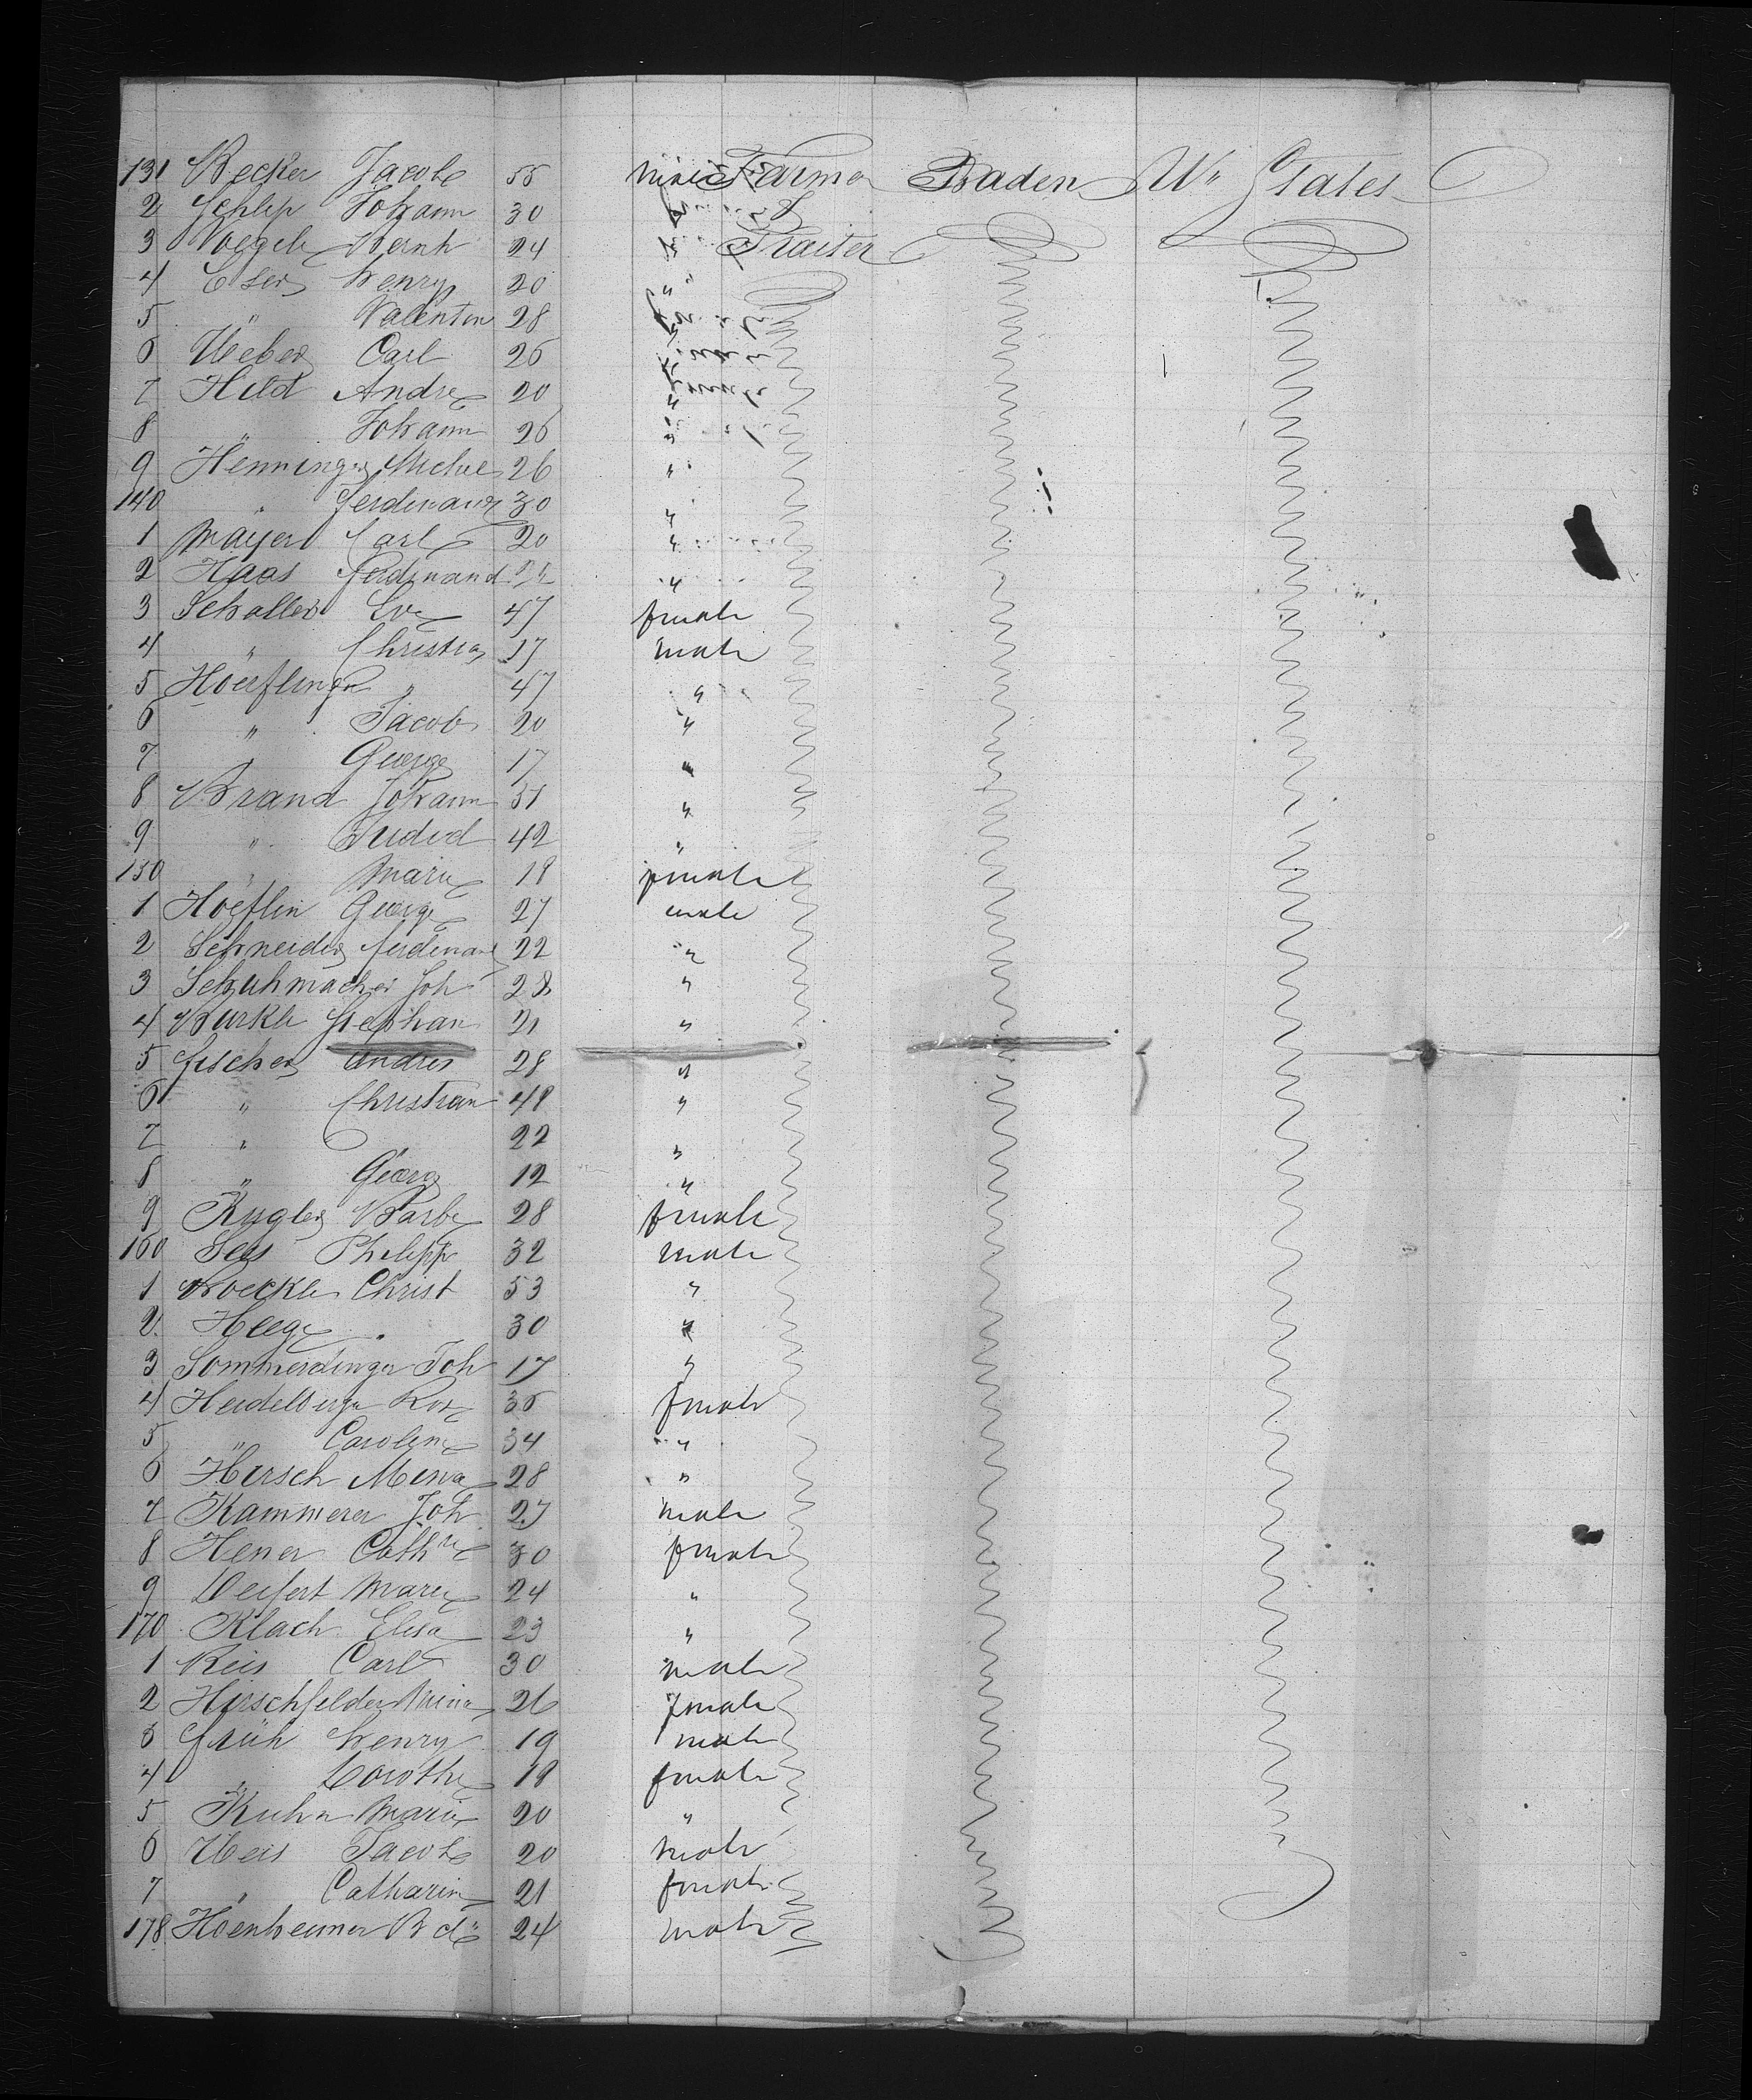 131 Becker Jacob 55 Farmer Baden Un States
2 Schlip Johann 30 &
3 Voegele Bernh 24 " Traiter
4 Eser Henry 20 "
5 " Valentin 28
6 Weber Carl 26
7 Hild Andre 20 "
8 " Johann 26 "
9 Henninger Michae 26 "
140 " Ferdinand 30 "
1 Mayer Carl 20 "
2 Haas Ferdinand "
3 Schaller Eva 47 female
4 " Christia 17 male
5 Höeflinger " 47 "
6 " Jacob 20 "
7 " George 17 "
8 Brand Johann 51 "
9 " 42 "
150 " Marie 18 female
1 Hoeflin George 27 male
2 Schneider Ferdinand 22 "
3 Schuhmacher Joh 28 "
4 Burkle Stephan 21 "
5 Fischer Andres 28 "
6 " Christian 48 "
7 " 22 "
8 " Georg 12 "
9 Kugler Barbe 28 female
160 Philipp 32 male
1 Boeckle Christ 53 "
2 Heege " 30 "
3 Sommerdinger Joh 17 "
4 Heidelberger Rosa 36 female
5 " Caroline 34 "
6 Hirsch Mina 28 "
7 Kammerer Joh 27 male
8 Hener Cathne 30 female
9 Seifert Marie 24 "
170 Klach Elisa 23 "
1 Reis Carl 30 male
2 Hirschfelder Mina 26 female
3 Früh Henry 19 male
4 " Dorothe 18 female
5 Kuhn Marie 20 "
6 Weis Jacob 20 male
7 " Catharin 21 female
178 Hoenheimer 24 male